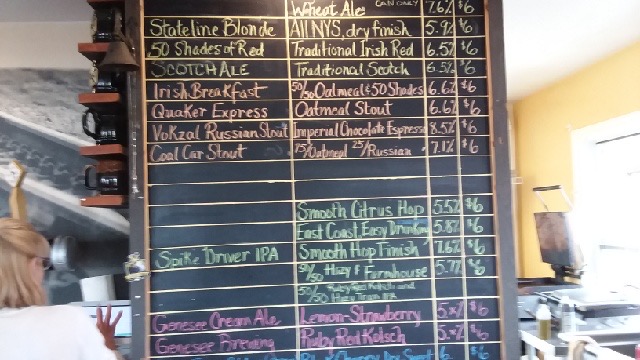 Wheat Ale 7.6% $6
Stateline Blonde All NYS, dry finish 5.9% $6
50 Shades of Red Traditional Irish Red 6.5% $6
SCOTCH ALE Traditional Scotch 6.5% $6
Irish Breakfast 50/50 Oatmeal & 50 Shades 6.6% $6
Quaker Express Oatmeal Stout 6.6% $6
Vokzal Russian Stout Imperial Chocolate Espresso 8.5% $6
Coal Car Stout 75/Oatmeal 25/Russian 7.1% $6
Smooth Citrus Hop 5.5% $6
East Coast, Easy Drinking 5.8% $6
Spike Driver IPA Smooth Hop Finish 7.6% $6
50/50 Hazy & Farmhouse 5.7% $6
50/50 Hazy Train IPA
Genesee Cream Ale Lemon-Strawberry 5.x% $6
Genesee Brewing Ruby Red Kolsch 5.x% $6